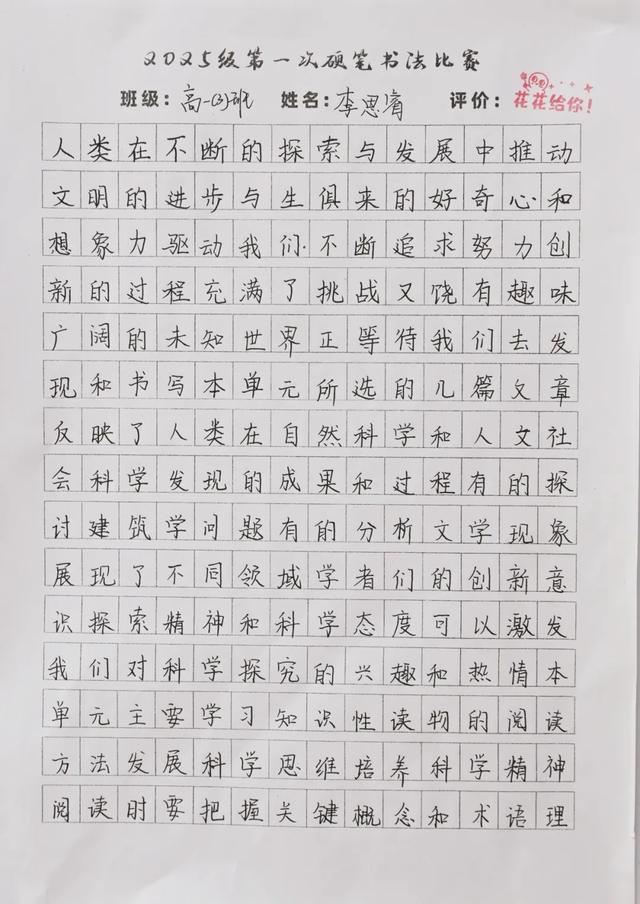 2025级第一次硬笔书法比赛
班级：高一(3)班 姓名：李思睿 评价：花花给你！
人类在不断的探索与发展中推动
文明的进步与生俱来的好奇心和
想象力驱动我们不断追求努力创
新的过程充满了挑战又饶有趣味
广阔的未知世界正等待我们去发
现和书写本单元所选的几篇文章
反映了人类在自然科学和人文社
会科学发现的成果和过程有的探
讨建筑学问题有的分析文学现象
展现了不同领域学者们的创新意
识探索精神和科学态度可以激发
我们对科学探究的兴趣和热情本
单元主要学习知识性读物的阅读
方法发展科学思维培养科学精神
阅读时要把握关键概念和术语理